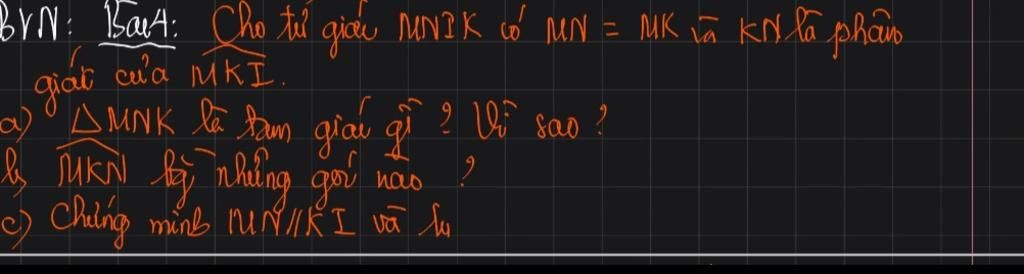 BVN: Bài 4: Cho tứ giác MNIK có MN = MK và KN là phân
giác của MKI.
a) △MNK là tam giác gì? Vì sao?
b) MKN bằng những góc nào?
c) Chứng minh MN//KI và